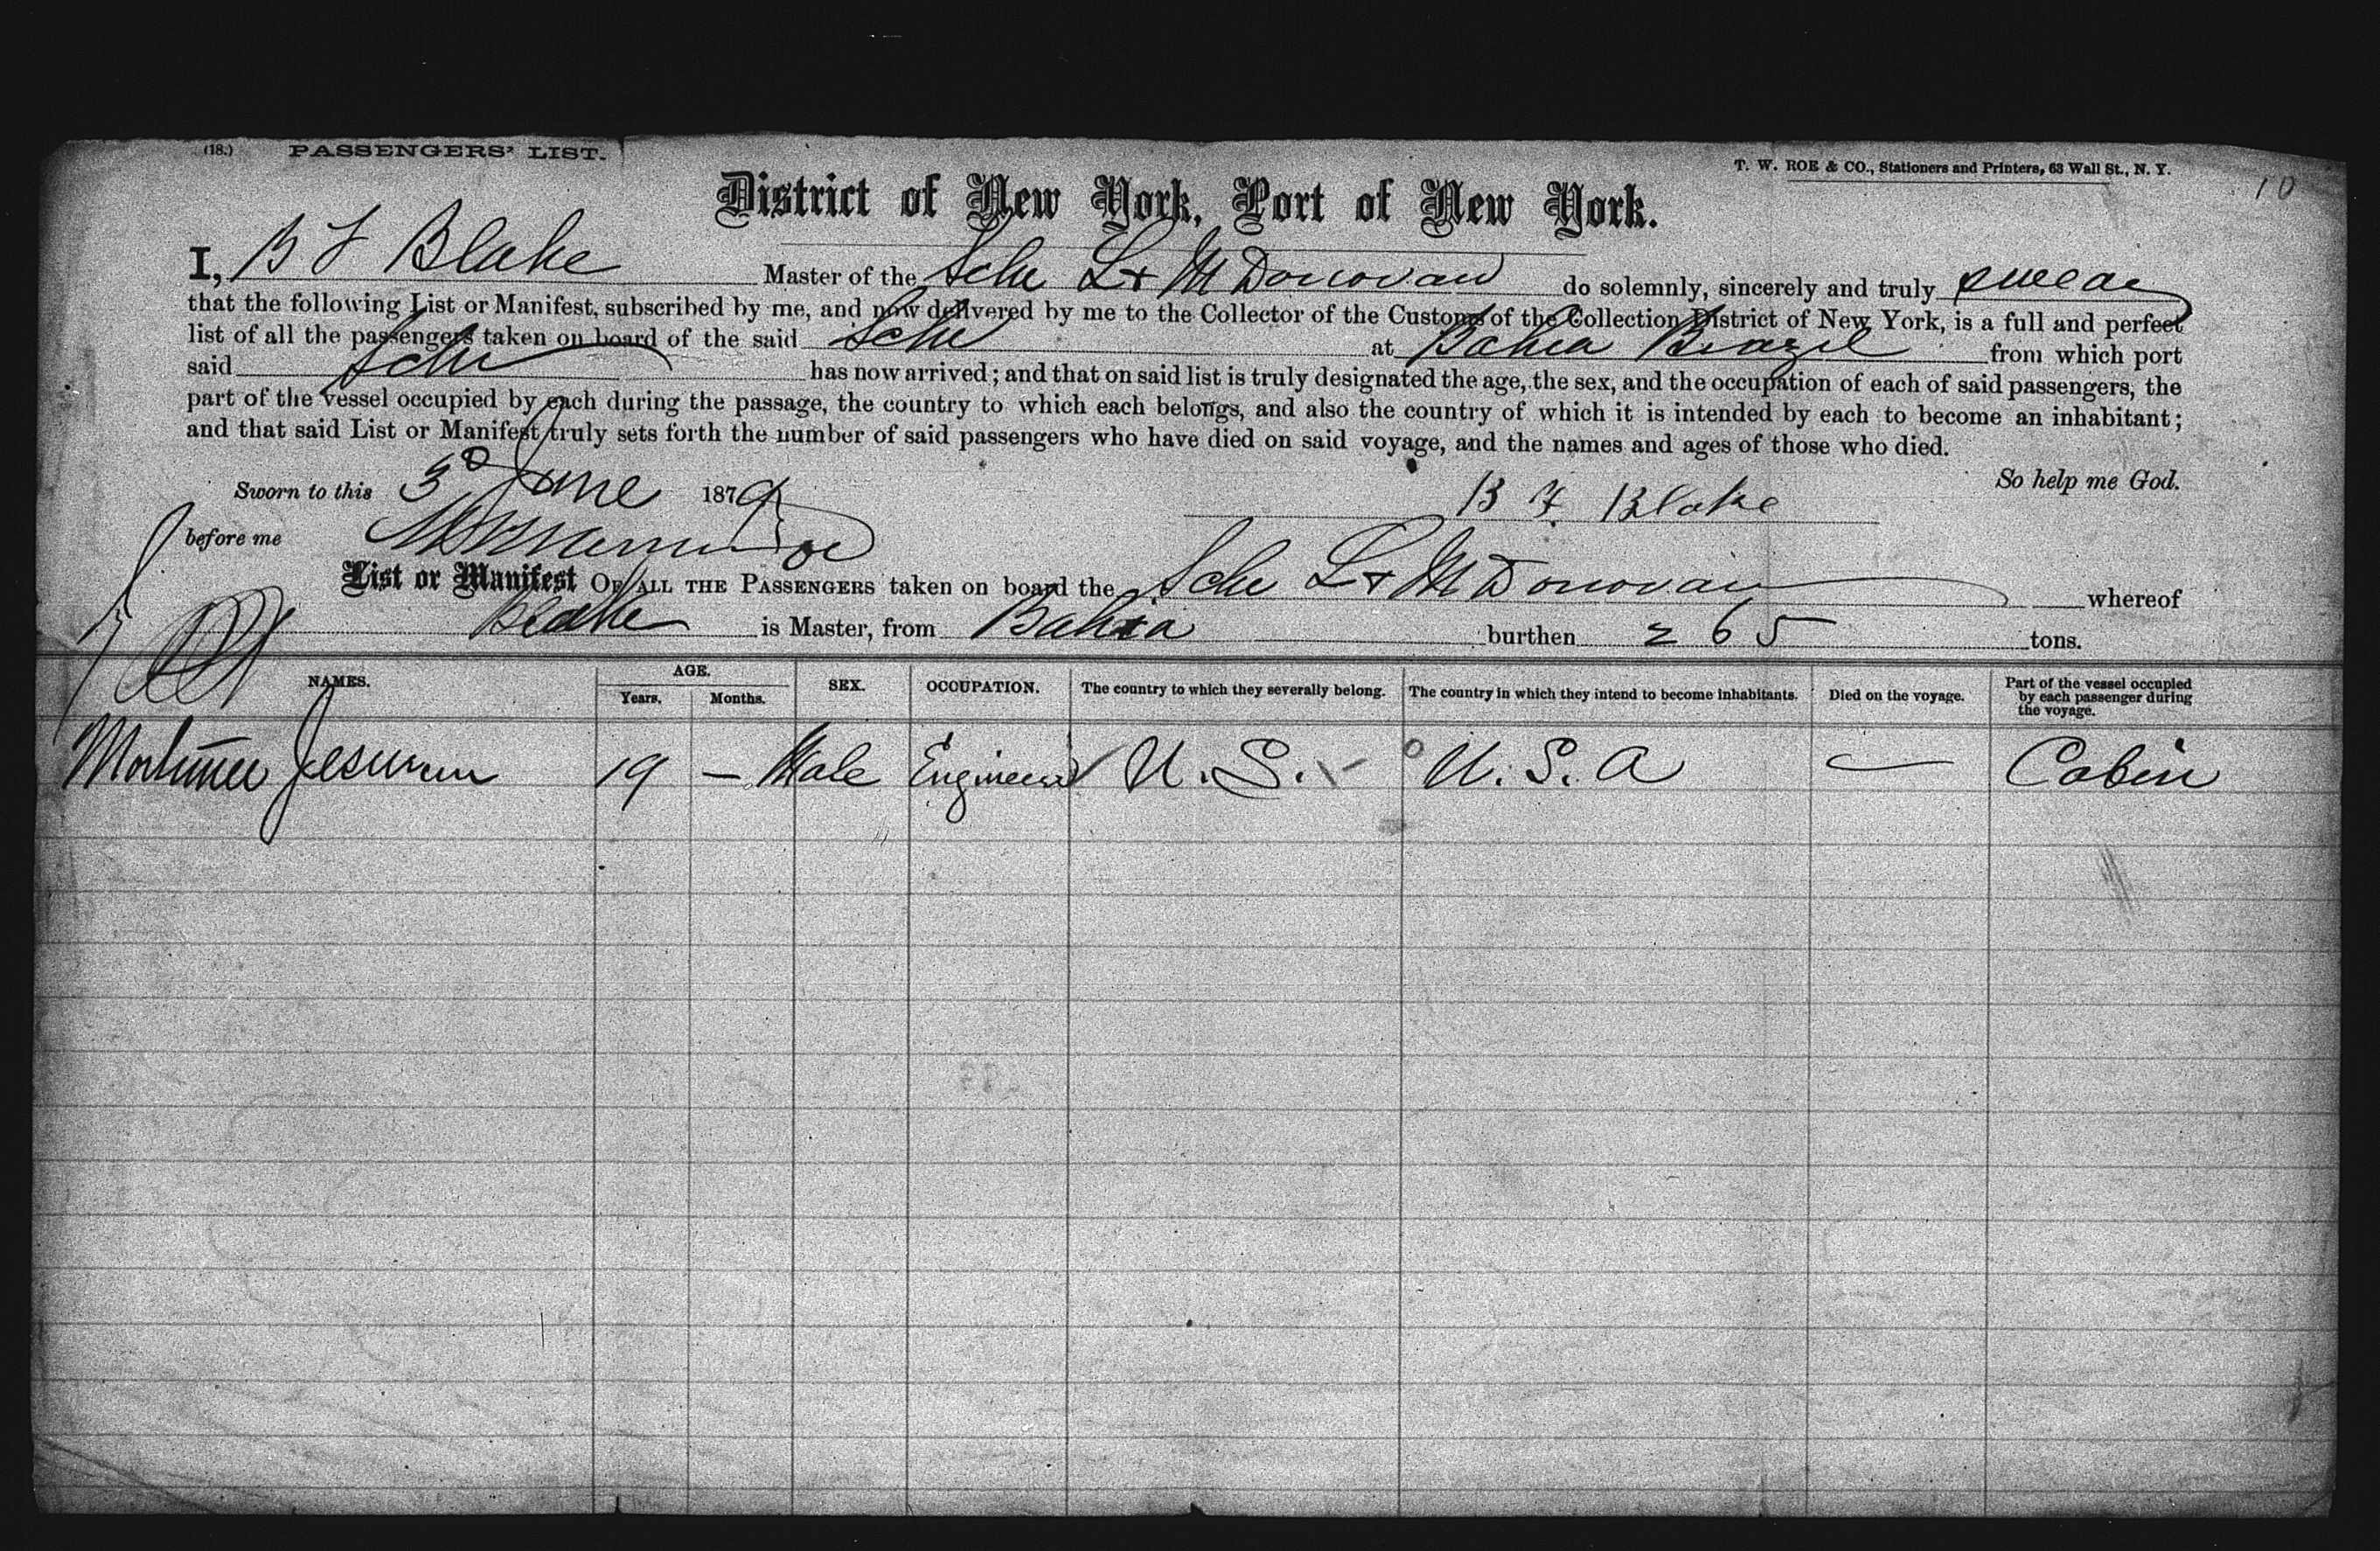 (18.) PASSENGERS' LIST.
T. W. ROE & CO., Stationers and Printers, 63 Wall St., N. Y.
10
District of New York, Port of New York.
I, B F Blake Master of the Schr L & M Donovan do solemnly, sincerely and truly swear
that the following List or Manifest, subscribed by me, and now delivered by me to the Collector of the Customs of the Collection District of New York, is a full and perfect
list of all the passengers taken on board of the said Schr at Bahia Brazil from which port
said Schr has now arrived; and that on said list is truly designated the age, the sex, and the occupation of each of said passengers, the
part of the vessel occupied by each during the passage, the country to which each belongs, and also the country of which it is intended by each to become an inhabitant;
and that said List or Manifest truly sets forth the number of said passengers who have died on said voyage, and the names and ages of those who died.
So help me God.
Sworn to this 3d June 1879
B F Blake
before me
List or Manifest OF ALL THE PASSENGERS taken on board the Schr L & M Donovan whereof
Blake is Master, from Bahia burthen 265 tons.
NAMES. AGE. Years. Months. SEX. OCCUPATION. The country to which they severally belong. The country in which they intend to become inhabitants. Died on the voyage. Part of the vessel occupied by each passenger during the voyage.
Mortimer Jesurun 19 — Male Engineer U. S. U. S. A — Cabin